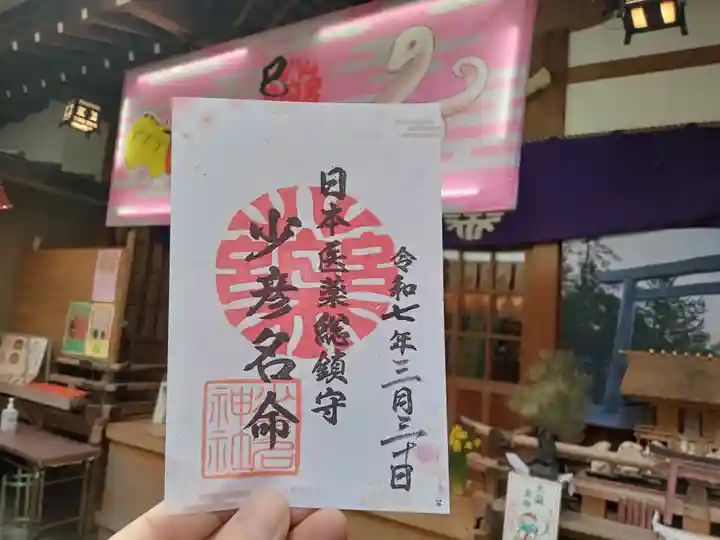 令和七年三月三十日
日本医薬総鎮守
少彦名命
薬
神社
巳